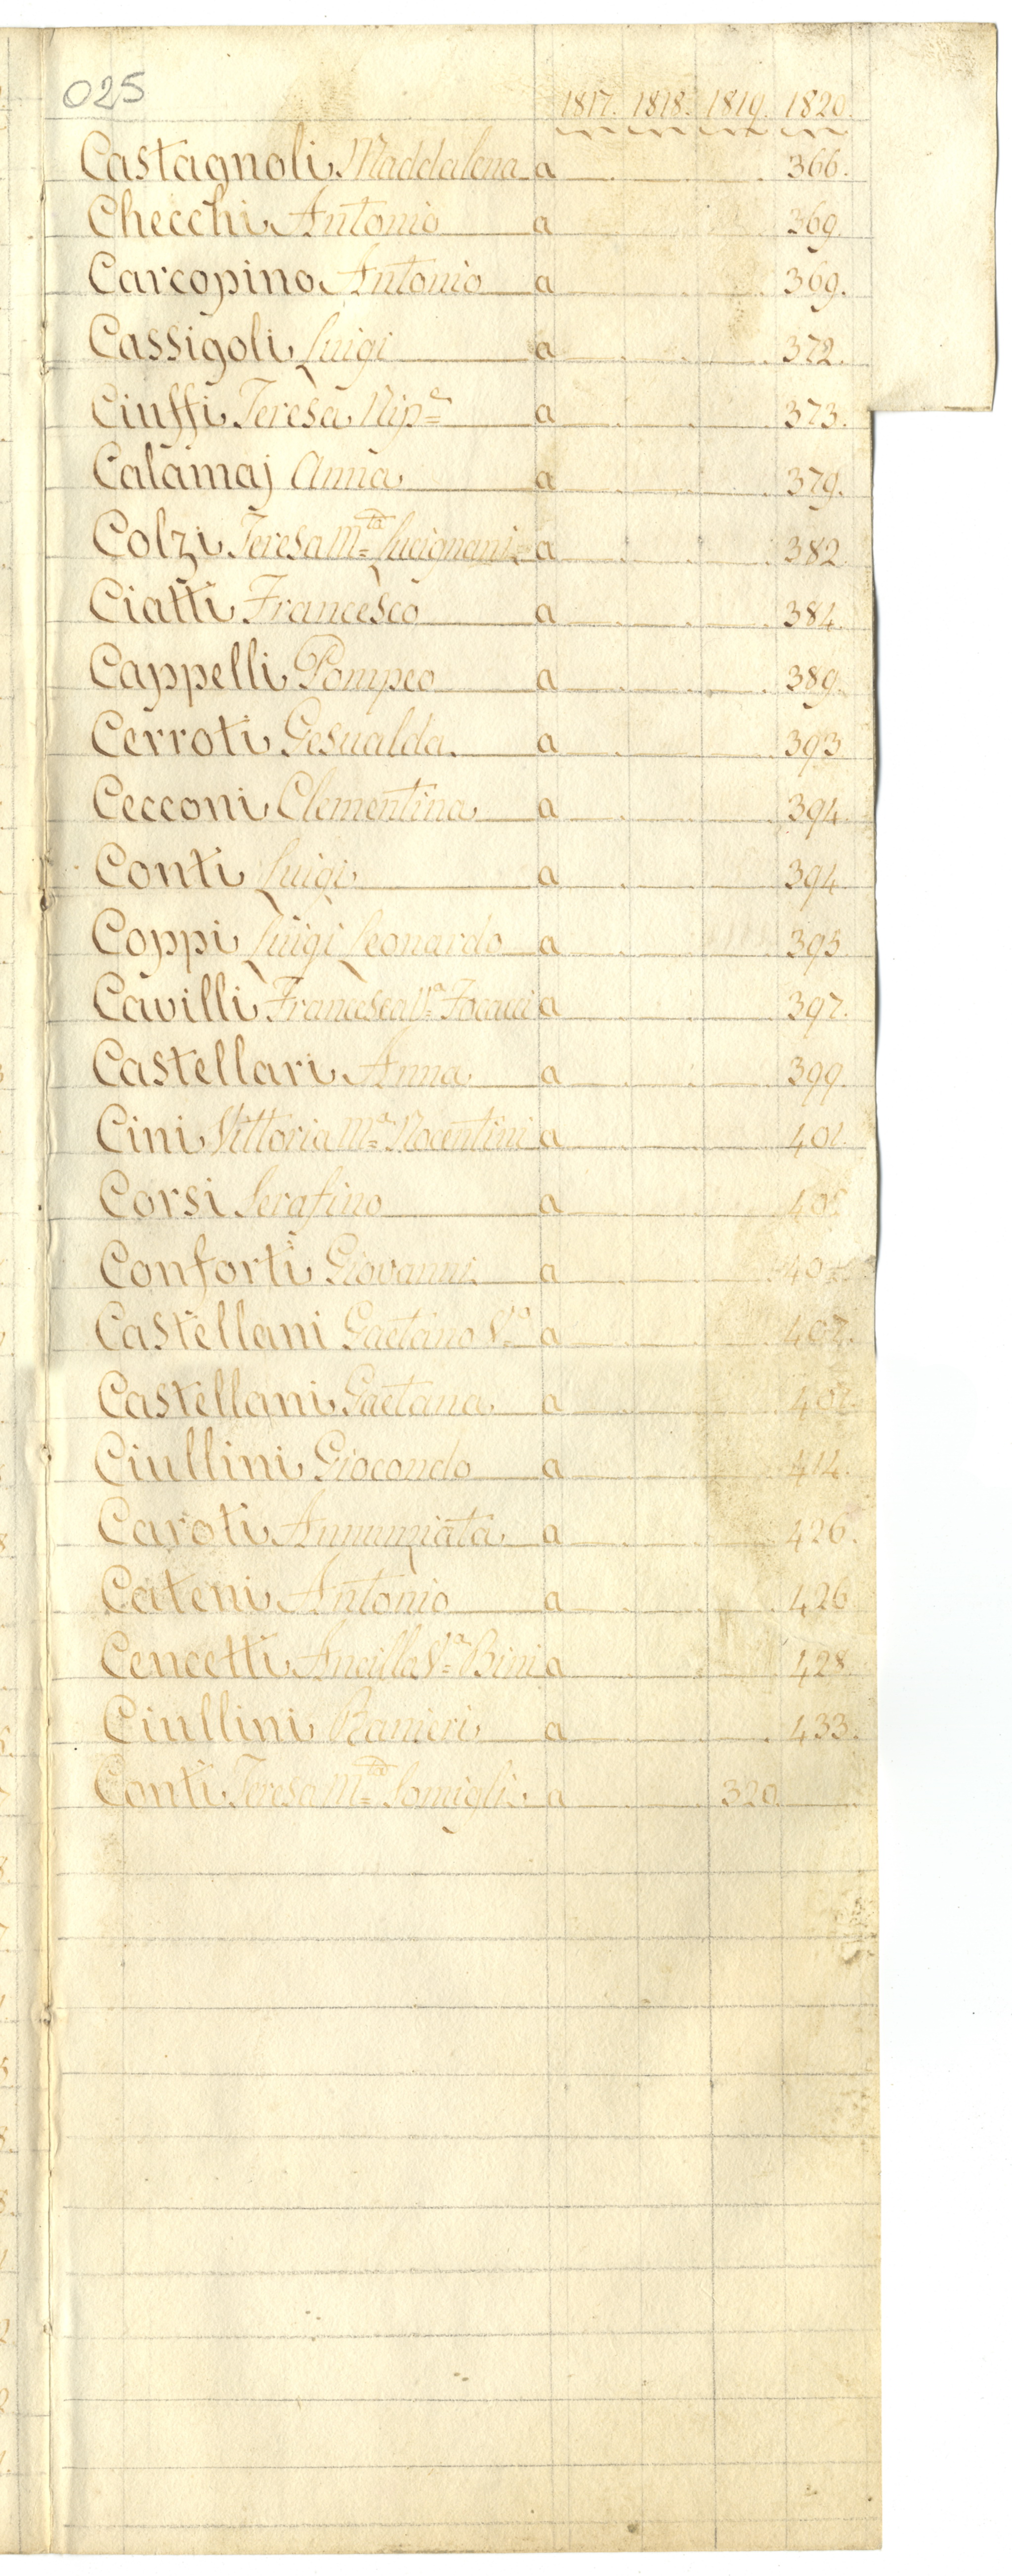 025
1817. 1818. 1819. 1820.
Castagnoli Maddalena a 366.
Checchi Antonio a 369.
Carcopino Antonio a 369.
Cassigoli Luigi a 372.
Ciuffi Teresa Nip.a a 373.
Calamaj Anna a 379.
Colzi Teresa M.ta Lucignani a 382.
Ciatti Francesco a 384.
Cappelli Pompeo a 389.
Cerroti Gesualda a 393.
Cecconi Clementina a 394.
Conti Luigi a 394.
Coppi Luigi Leonardo a 395.
Cavilli Francesca V.a Focacci a 397.
Castellari Anna a 399.
Cini Vittoria M.a Nocentini a 401.
Corsi Serafino a
Conforti Giovanni a
Castellani Gaetano V.a a 407.
Castellani Gaetana a 407.
Ciullini Giocondo a 414.
Caroti Annunziata a 426.
Cateni Antonio a 426
Cencetti Ancilla V.a Bini a 428.
Ciullini Ranieri a 433.
Conti Teresa M.ta Somigli a 320.